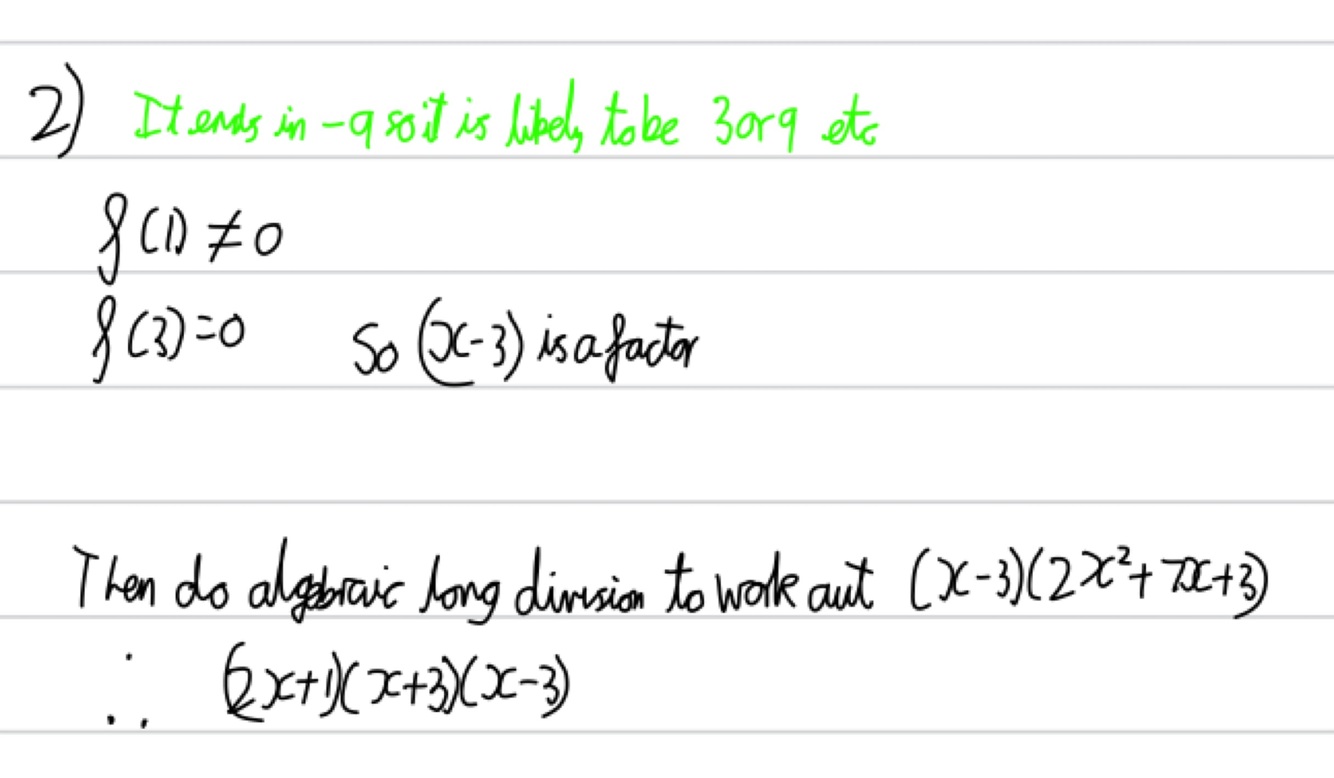 2) It ends in -9 so it is likely to be 3 or 9 etc
f(1) ≠ 0
f(3)=0 So (x-3) is a factor
Then do algebraic long division to work out (x-3)(2x²+7x+3)
∴ (2x+1)(x+3)(x-3)